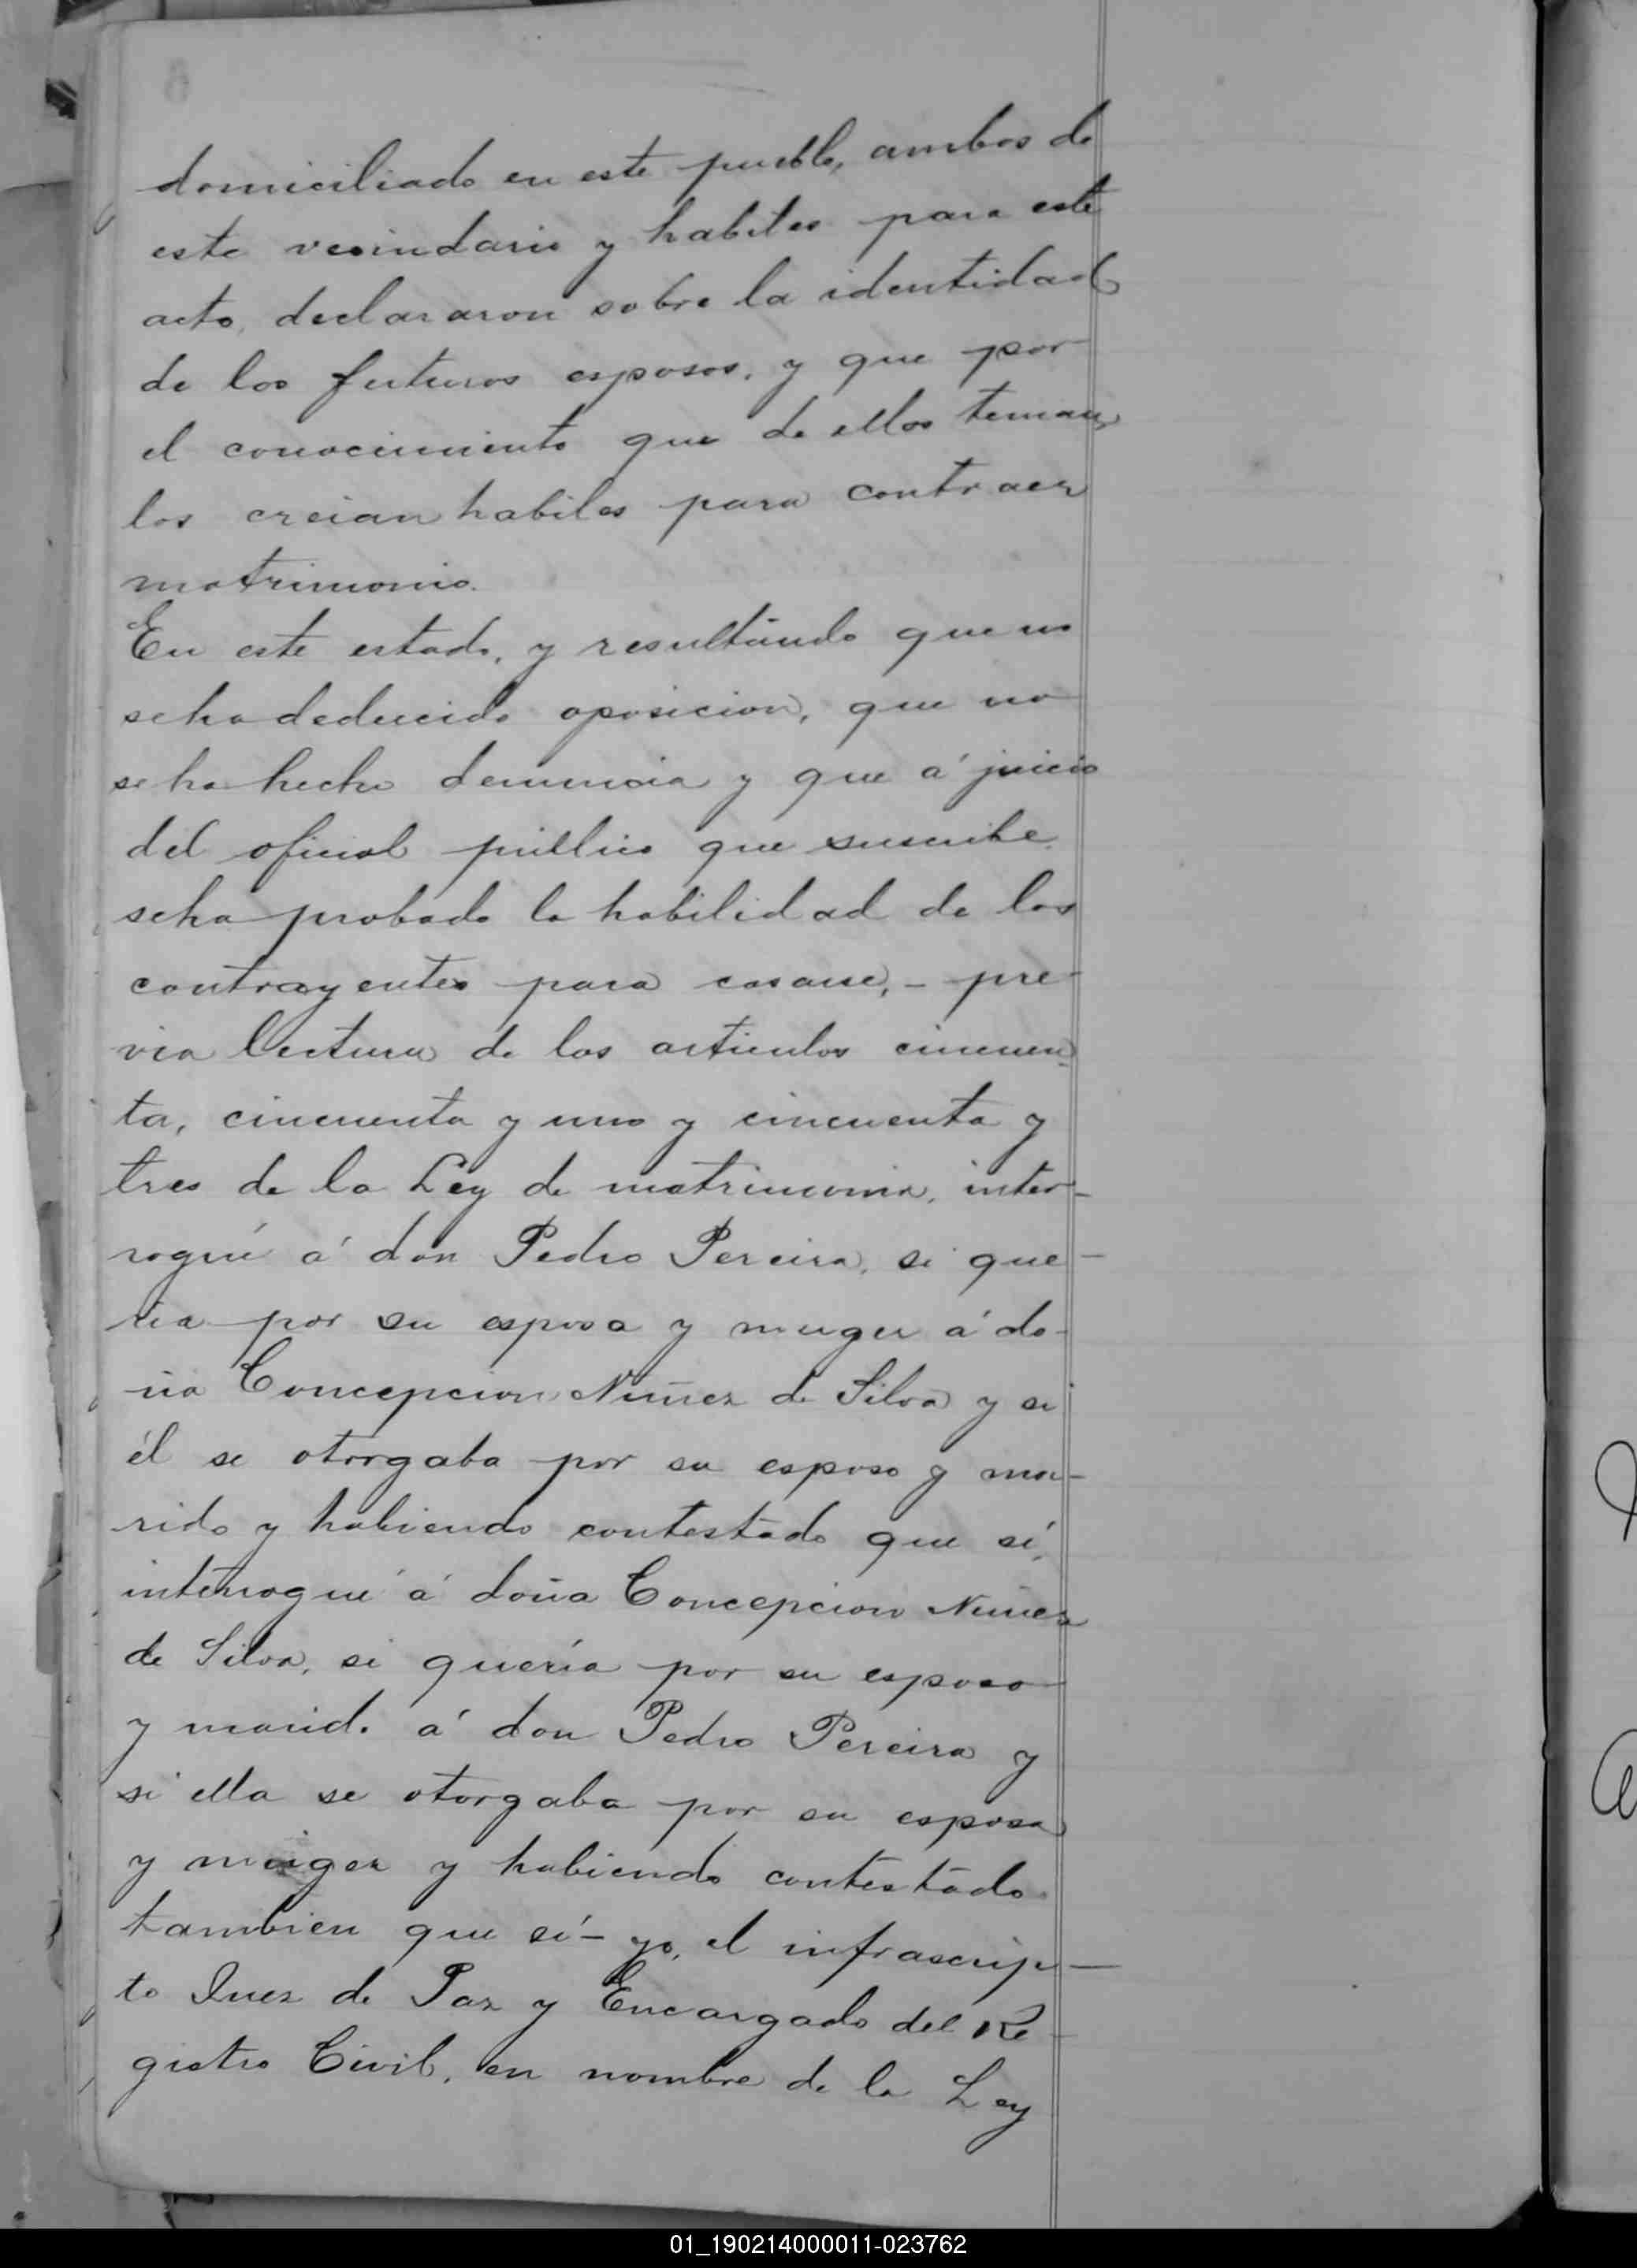 domiciliado en este pueblo, ambos de
este vecindario y habiles para este
acto, declararon sobre la identidad
de los futuros esposos, y que por
el conocimiento que de ellos tenian,
los creian habiles para contraer
matrimonio.
En este estado, y resultando que no
se ha deducido oposicion, que no
se ha hecho denuncia y que á juicio
del oficial público que suscribe
se ha probado la habilidad de los
contrayentes para casarse, - pre-
via lectura de los articulos cincuen-
ta, cincuenta y uno y cincuenta y
tres de la Ley de matrimonio, inter-
rogué á don Pedro Pereira, si que-
ria por su esposa y muger á do-
ña Concepcion Nuñez de Silva y si
él se otorgaba por su esposo y ma-
rido y habiendo contestado que sí,
interrogué á doña Concepcion Nuñez
de Silva, si quería por su esposo
y marido á don Pedro Pereira y
si ella se otorgaba por su esposa
y muger y habiendo contestado
tambien que sí - yo, el infrascrip-
to Juez de Paz y Encargado del Re-
gistro Civil, en nombre de la Ley
01_190214000011-023762